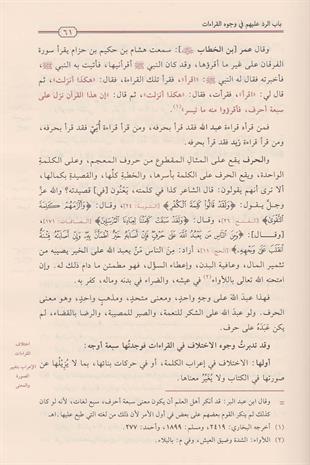 باب الرد عليهم في وجوه القراءات
٦١
وقال عمر [بن الخطاب ﷺ]: سمعت هشام بن حكيم بن حزام يقرأ سورة
الفرقان على غير ما أقرؤها، وقد كان النبي ﷺ أقرأنيها، فأتيت به النبي ﷺ،
فأخبرته فقال له النبي ﷺ: «اقرأ»، فقرأ تلك القراءة، فقال: «هكذا أنزلت»، ثم
قال لي: «اقرأ»، فقرأت، فقال: «هكذا أنزلت»، ثم قال: «إن هذا القرآن نزل على
سبعة أحرف، فاقرؤوا منه ما تيسر»(١).
فمن قرأه قراءة عبد الله فقد قرأ بحرفه، ومن قرأ قراءة أُبَيّ فقد قرأ بحرفه،
ومن قرأ قراءة زيد فقد قرأ بحرفه.
والحرف يقع على المثال المقطوع من حروف المعجم، وعلى الكلمة
الواحدة، ويقع الحرف على الكلمة بأسرها، والخطبة كلها، والقصيدة بكمالها،
ألا ترى أنهم يقولون: قال الشاعر كذا في كلمته، يَعْنُون [في] قصيدته؟ والله عزَّ
وجلَّ يقول: ﴿وَلَقَدْ قَالُوا كَلِمَةَ الْكُفْرِ﴾ [التوبة: ]، وقال: ﴿وَأَلْزَمَهُمْ كَلِمَةَ
التَّقْوَىٰ﴾ [الفتح: ]، وقال: ﴿وَلَقَدْ سَبَقَتْ كَلِمَتُنَا لِعِبَادِنَا الْمُرْسَلِينَ﴾ [الصافات: ١٧١]،
[وقال]: ﴿وَمِنَ النَّاسِ مَن يَعْبُدُ اللَّهَ عَلَىٰ حَرْفٍ فَإِنْ أَصَابَهُ خَيْرٌ اطْمَأَنَّ بِهِ وَإِنْ أَصَابَتْهُ فِتْنَةٌ
انقَلَبَ عَلَىٰ وَجْهِهِ﴾ [الحج: ١١]، أراد: مِنَ الناس مَنْ يعبد الله على الخير يصيبه من
تثمير المال، وعافية البدن، وإعطاء السؤل، فهو مطمئن ما دام ذلك له. وإن
امتحنه الله تعالى باللأواء(٢) في عيشه، والضراء في بدنه وماله، كفر به.
فهذا عبدَ الله على وجهٍ واحدٍ، ومعنى متحدٍ، ومذهبٍ واحدٍ، وهو معنى
الحرف. ولو عبد الله على الشكر للنعمة، والصبر للمصيبة، والرضا بالقضاء، لم
يكن عَبَدَهُ على حرف.
وقد تدبرتُ وجوه الاختلاف في القراءات فوجدتُها سبعة أوجه:
أولها: الاختلاف في إعراب الكلمة، أو في حركات بنائها، بما لا يُزِيْلُها عن
صورتها في الكتاب ولا يُغَيِّرُ معناها.
اختلاف
القراءات
الإعراب بتغيير
الصورة
والمعنى
(١) أخرجه البخاري: ٢٤١٩، ومسلم: ١٨٩٩، وأحمد: ٢٧٧.
(٢) اللأواء: الشدة وضيق العيش، وفي م: بالبلاء.